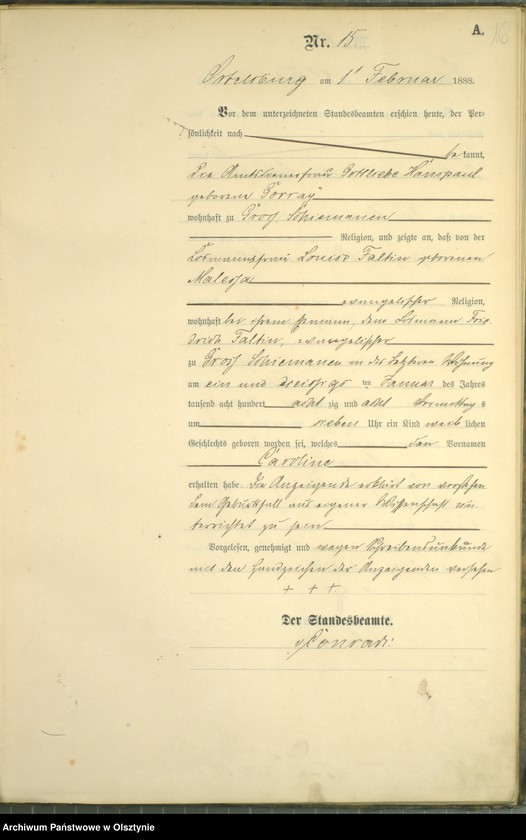 A.
Nr. 15
Ortelsburg am 1ᵗ Februar 1888.
Vor dem unterzeichneten Standesbeamten erschien heute, der Per-
sönlichkeit nach
be kannt,
die Gottliebe Hanspaul
geborene Gorray
wohnhaft zu Groß Schiemanen
Religion, und zeigte an, daß von der
Losmannsfrau Louise Faltin geborenen
Malessa
evangelischer Religion,
wohnhaft bei ihrem Ehemann, dem Losmann Frie-
drich Faltin, evangelischer
zu Groß Schiemanen in des Letzteren Wohnung
am ein und dreißigs ten Januar des Jahres
tausend acht hundert acht zig und acht Vormittag s
um sieben Uhr ein Kind weib lichen
Geschlechts geboren worden sei, welches den Vornamen
Caroline
erhalten habe. Die Anzeigende erklärt von vorstehen-
dem Geburtsfall aus eigener Wissenschaft un-
terrichtet zu sein
Vorgelesen, genehmigt und wegen Schreibensunkunde
mit den Handzeichen der Anzeigenden versehen
+ + +
Der Standesbeamte.
Conradi
Archiwum Państwowe w Olsztynie